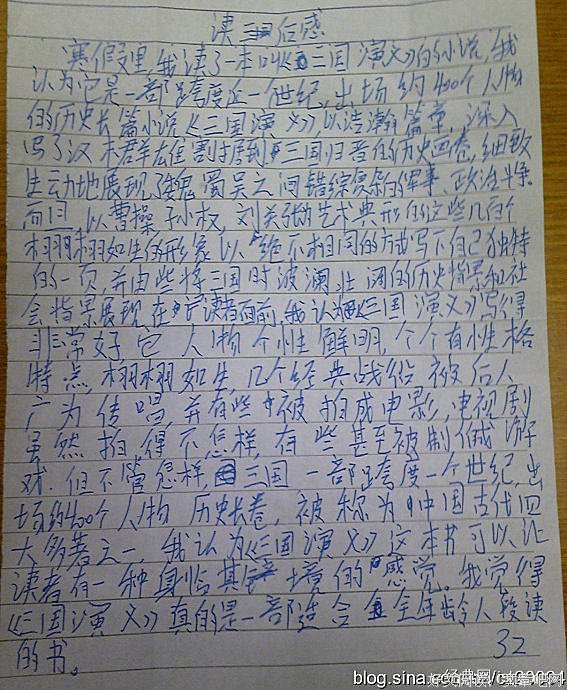 读三国后感
寒假里,我读了一本叫《三国演义》的小说,我
认为它是一部跨度近一个世纪,出场约400个人物
的历史长篇小说《三国演义》,以浩瀚篇章,深入
写了汉末群雄割据到三国归晋的历史画卷,细致
生动地展现了魏蜀吴之间错综复杂的军事、政治斗争
而且,以曹操,孙权,刘关张的艺术典形的这些几百个
栩栩如生的形象以绝不相同的方式写下自己独特
的一页,并由些将三国时波澜壮阔的历史背景和社
会背景展现在读者面前,我认为《三国演义》写得
非常好它人物个性鲜明,个个有性格
特点,栩栩如生,几个经典战役被后人
广为传唱,并有些被拍成电影,电视剧
虽然拍得不怎样,有些甚至被制作成游
戏.但不管怎样,三国一部跨度一个世纪,出
场约400个人物历史长卷,被称为中国古代四
大名著之一,我认为《三国演义》这本书可以让
读者有一种身临其境的感觉。我觉得
《三国演义》真的是一部适合全年龄人段读
的书。
32
blog.sina.